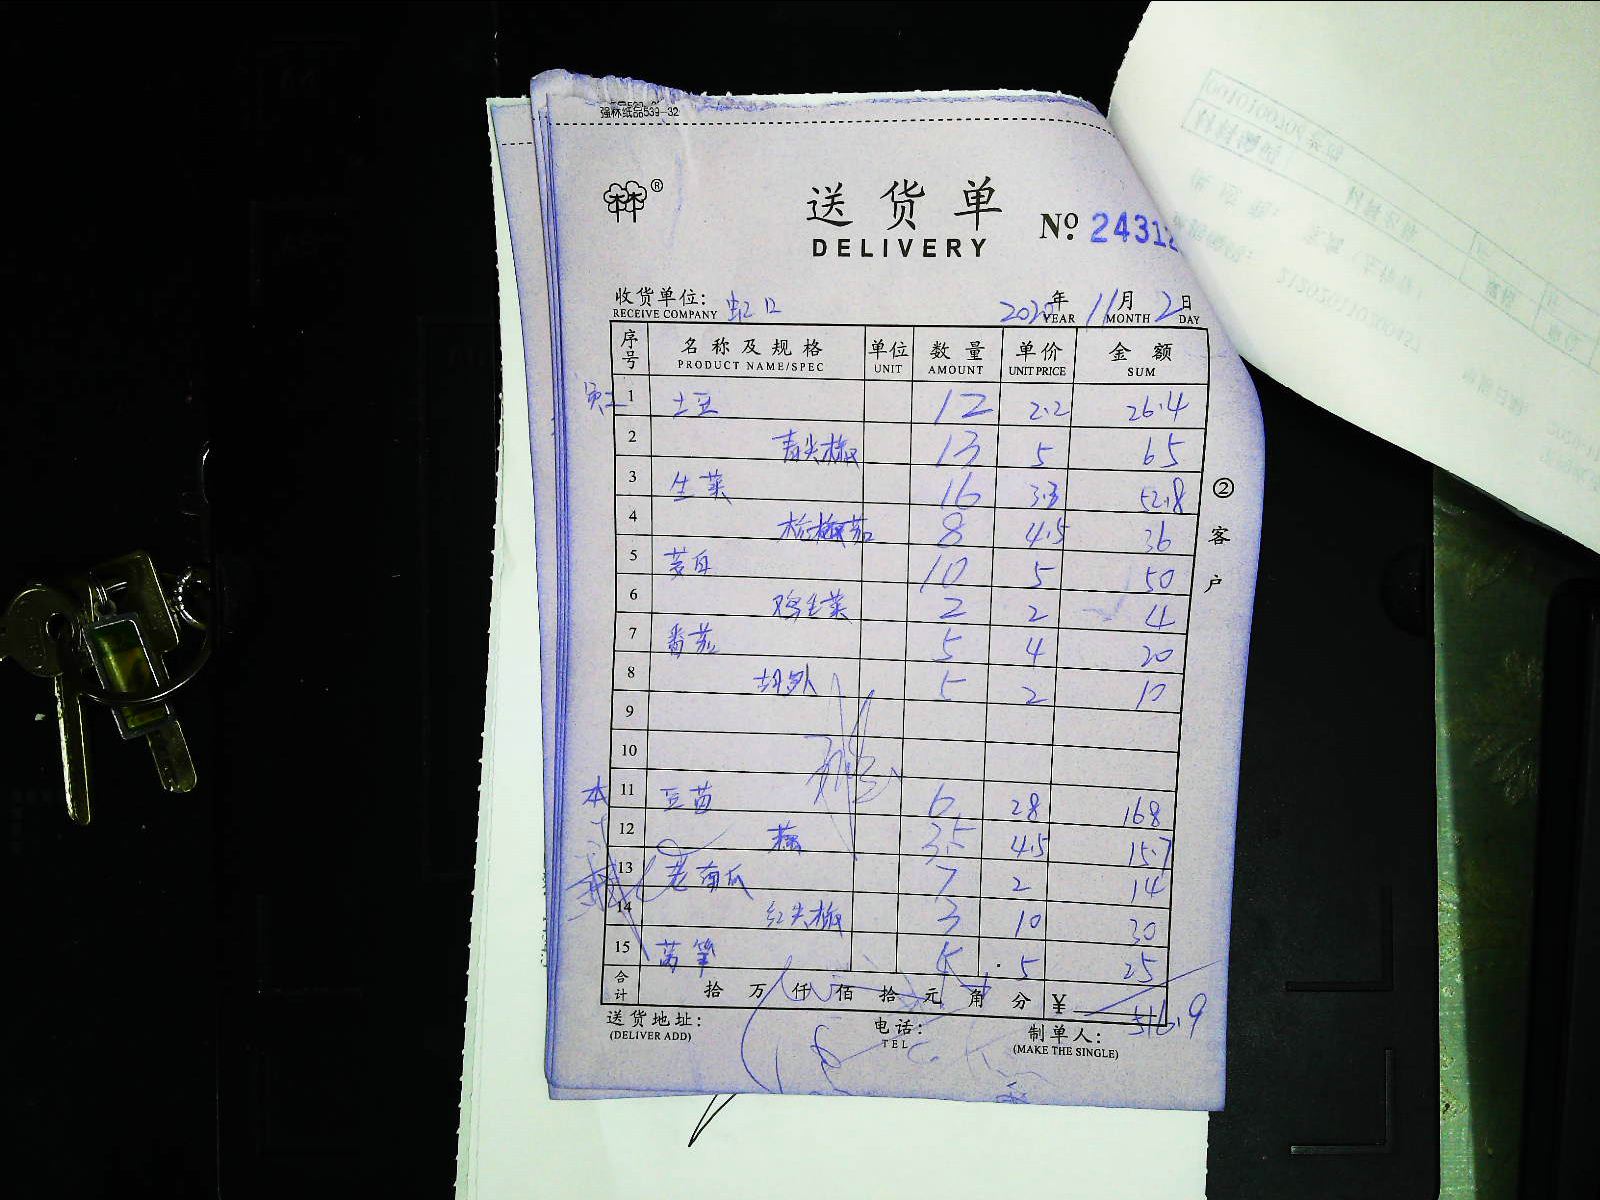 强林纸品539-32
林®
送货单
DELIVERY
Nº 24312
收货单位: 虹口 2020年 11月 2日
RECEIVE COMPANY YEAR MONTH DAY
序号 名称及规格 单位 数量 单价 金额
PRODUCT NAME/SPEC UNIT AMOUNT UNIT PRICE SUM
员工 1 土豆 12 2.2 26.4
2 青尖椒 13 5 65
3 生菜 16 3.3 52.8
4 8 4.5 36
5 茭白 10 5 50
6 鸡毛菜 2 2 4
7 番茄 5 4 20
8 5 2 10
9
10
本 11 豆苗 6 28 168
12 3.5 4.5 15.7
13 老南瓜 7 2 14
14 红尖椒 3 10 30
15 莴笋 5 5 25
合计 拾 万 仟 佰 拾 元 角 分 ¥ 516.9
送货地址: 电话: 制单人:
(DELIVER ADD) TEL (MAKE THE SINGLE)
②客户